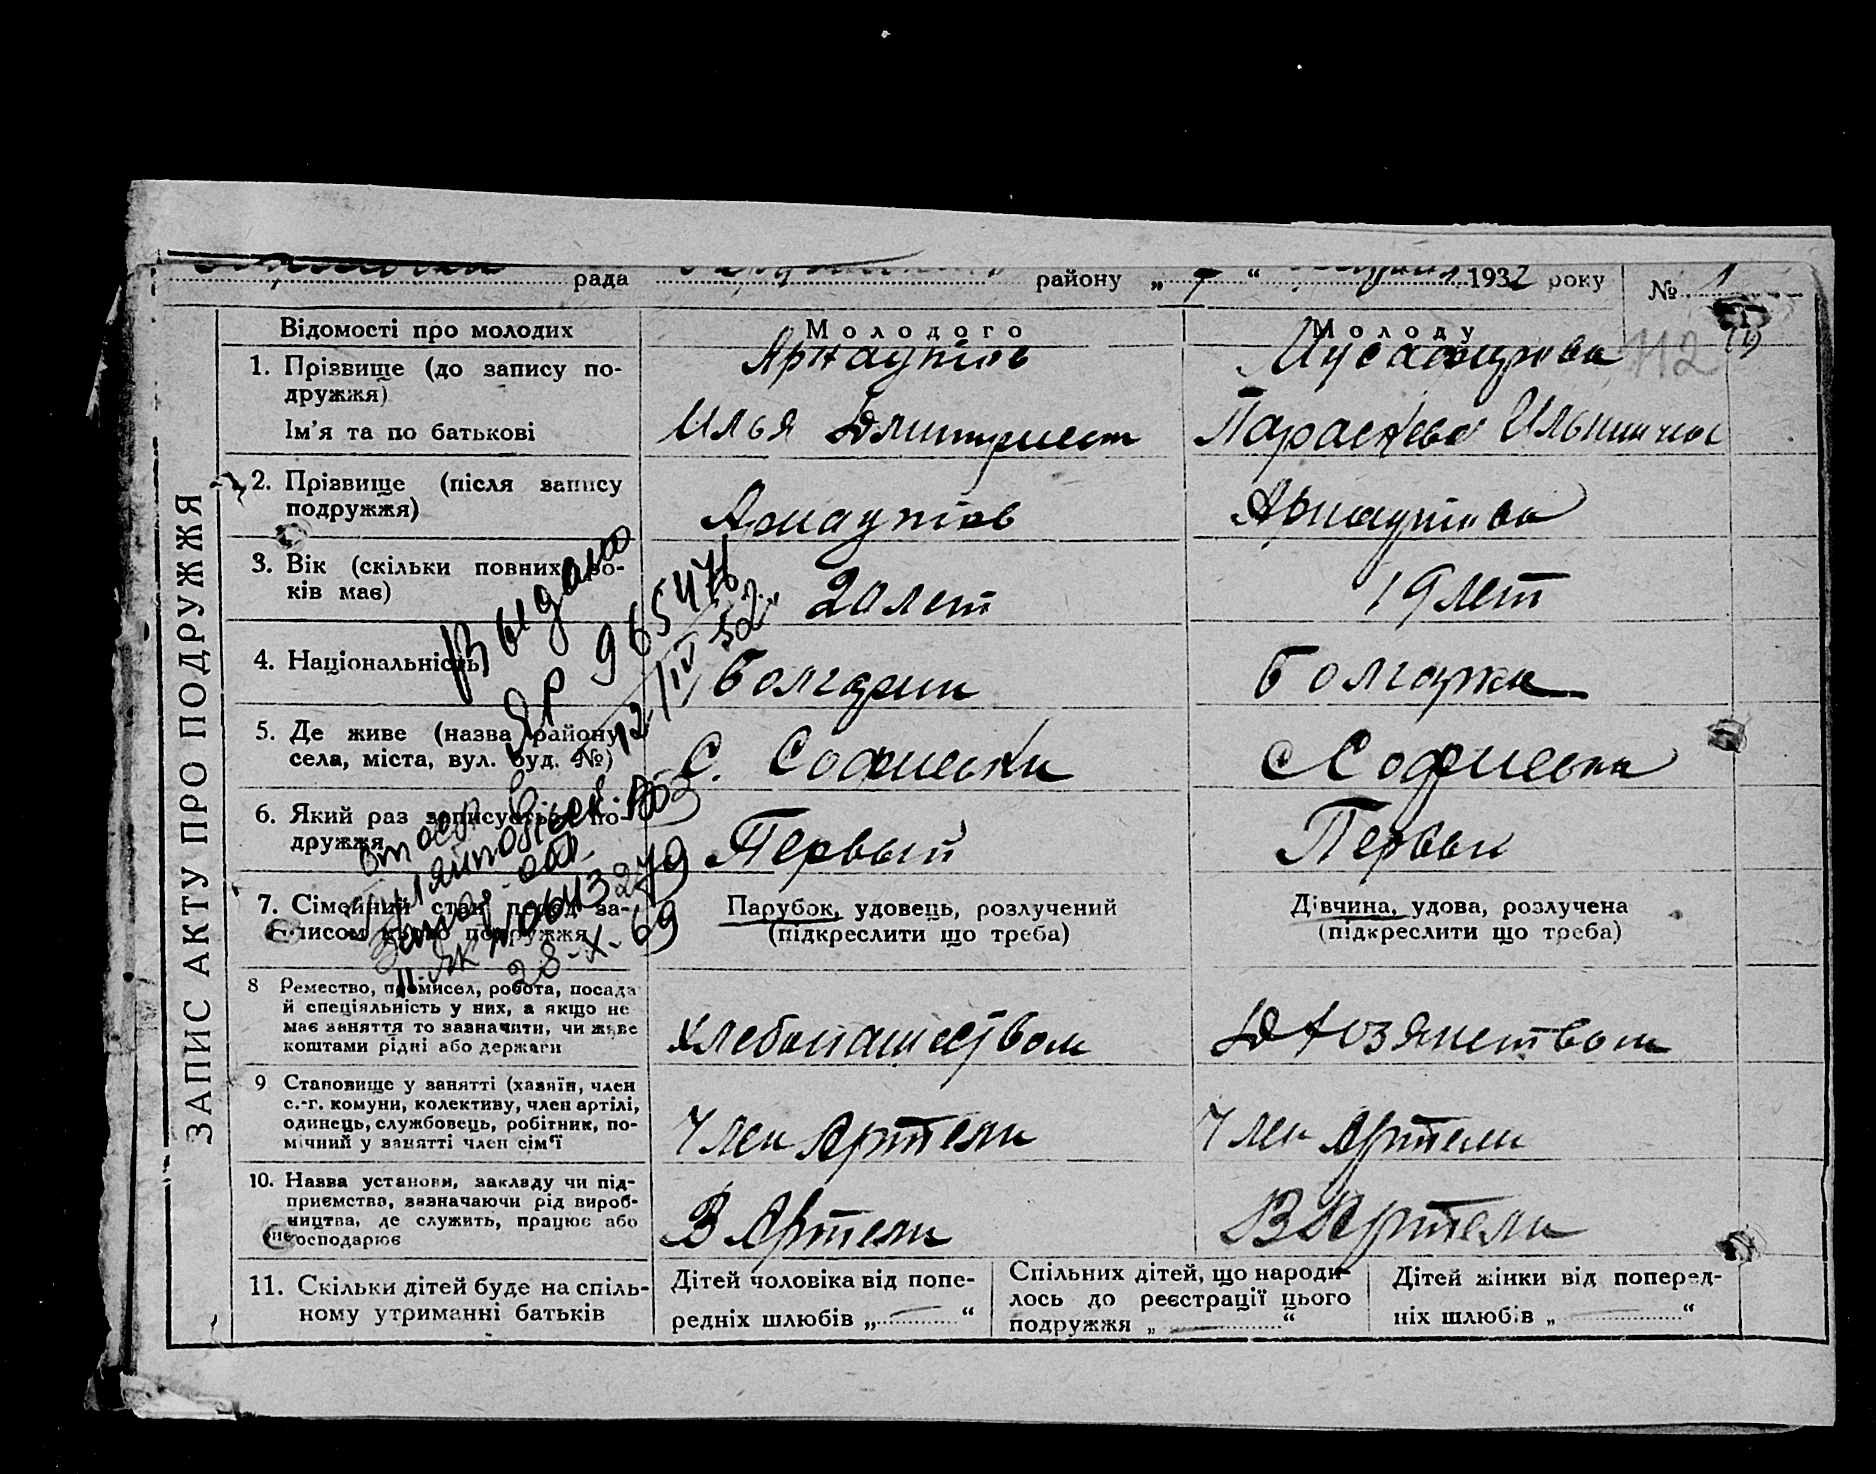 рада району „ 7 “ 1932 року № 1
ЗАПИС АКТУ ПРО ПОДРУЖЖЯ
Відомості про молодих
Молодого
Молоду
112
1. Прізвище (до запису по-
дружжя)
Арнаутов
Ім'я та по батькові
Илья
Параскева Ильинична
2. Прізвище (після запису
подружжя)
Арнаутов
Арнаутова
3. Вік (скільки повних ро-
ків має)
20 лет
19 лет
4. Національність
Болгарин
Болгарка
5. Де живе (назва району
села, міста, вул. буд. №)
С. Софиевки
С Софиевка
6. Який раз записується по-
дружжя
Первый
Первый
7. Сімейний стан перед за-
писом цього подружжя
Парубок, удовець, розлучений
(підкреслити що треба)
Дівчина, удова, розлучена
(підкреслити що треба)
8 Ремество, промисел, робота, посада
й спеціяльність у них, а якщо не
має заняття то зазначити, чи живе
коштами рідні або держави
Хлебопашеством
Д Хозяйством
9 Становище у занятті (хазяїн, член
с.-г. комуни, колективу, член артілі,
одинець, службовець, робітник, по-
мічний у занятті член сім'ї
Член Артели
Член Артели
10. Назва установи, закладу чи під-
приємства, зазначаючи рід вироб-
ництва, де служить, працює або
господарює
В Артели
В Артели
11. Скільки дітей буде на спіль-
ному утриманні батьків
Дітей чоловіка від попе-
редніх шлюбів „ “
Спільних дітей, що народи-
лось до реєстрації цього
подружжя „ “
Дітей жінки від поперед-
ніх шлюбів „ “
Выдано
ЯР 965476
12/IV 52
28-X-69